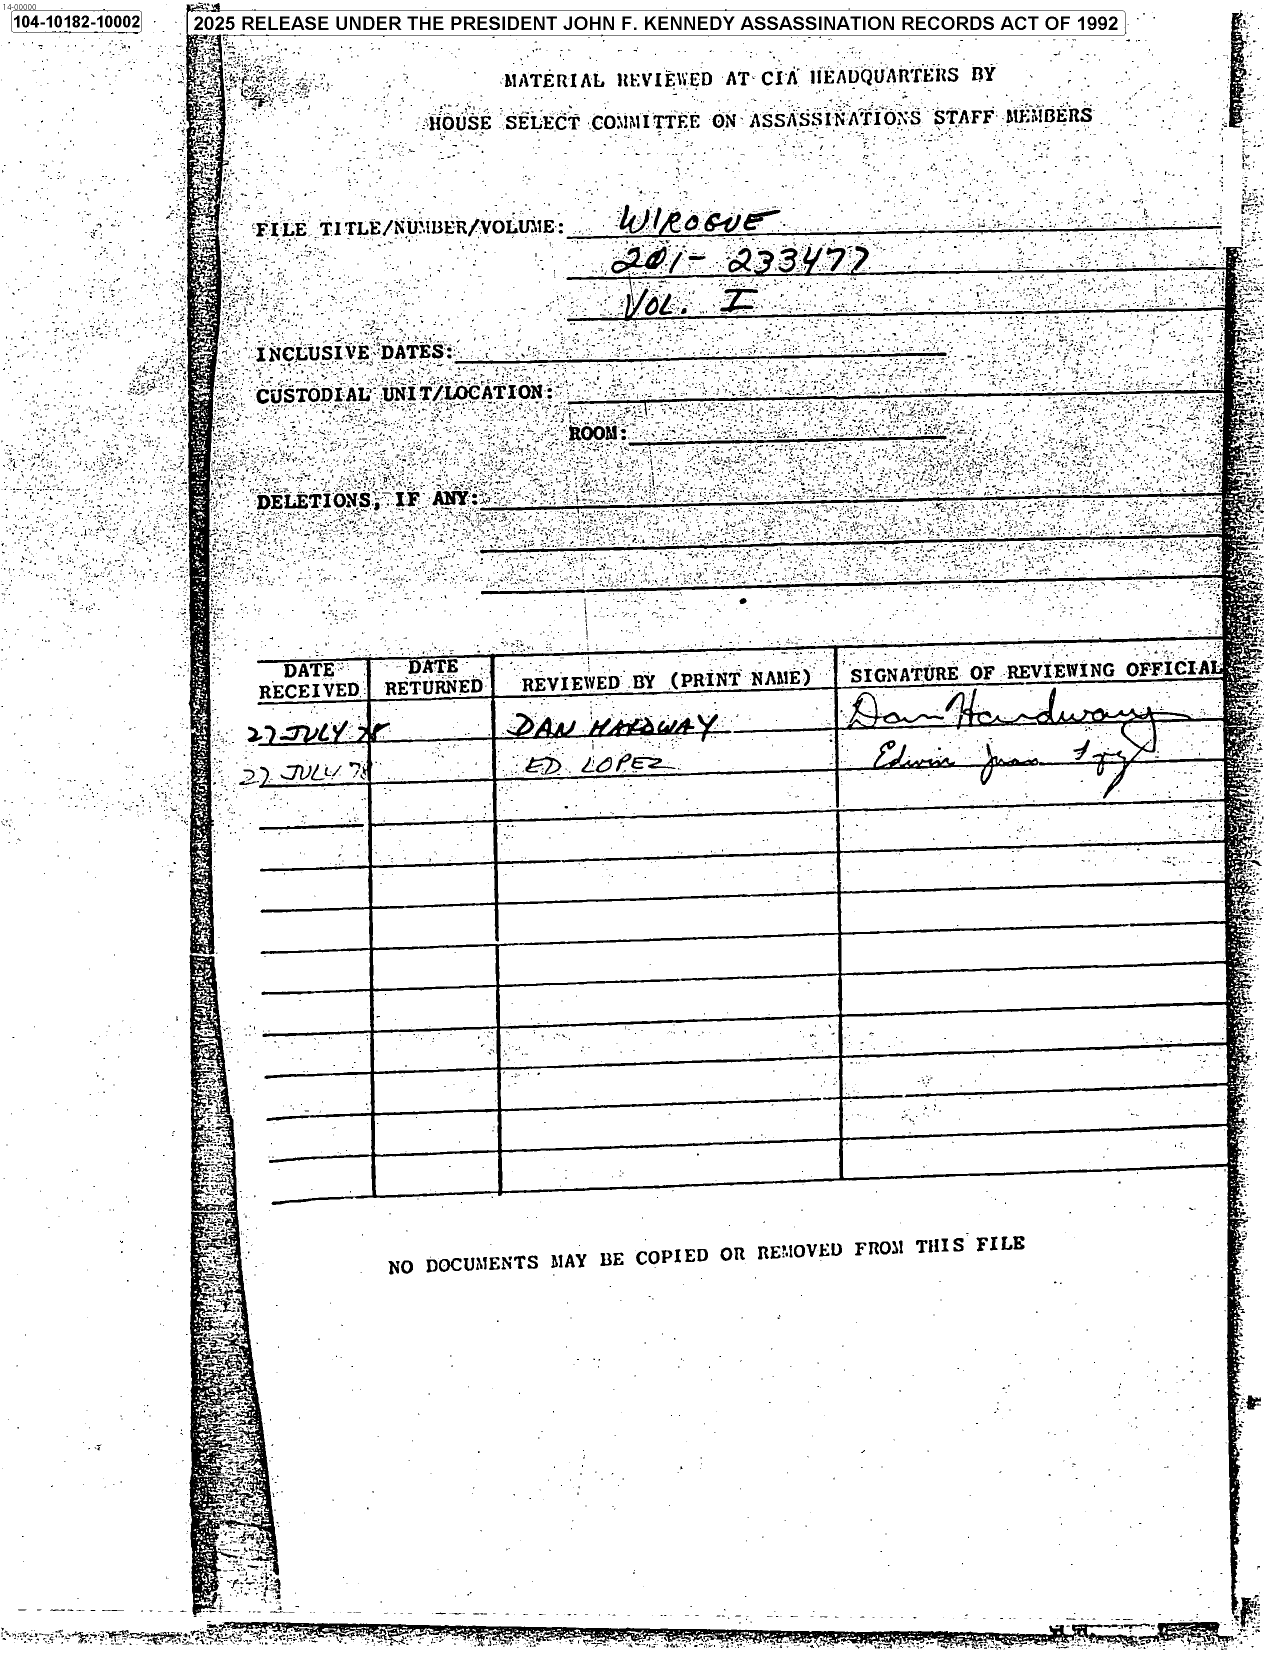 14-00000
104-10182-10002
2025 RELEASE UNDER THE PRESIDENT JOHN F. KENNEDY ASSASSINATION RECORDS ACT OF 1992
MATERIAL REVIEWED AT CIA HEADQUARTERS BY
HOUSE SELECT COMMITTEE ON ASSASSINATIONS STAFF MEMBERS
FILE TITLE/NUMBER/VOLUME: WIROGUE
201- 233477
VOL. I
INCLUSIVE DATES:
CUSTODIAL UNIT/LOCATION:
ROOM:
DELETIONS, IF ANY:
DATE RECEIVED DATE RETURNED REVIEWED BY (PRINT NAME) SIGNATURE OF REVIEWING OFFICIAL
27 JULY 78 DAN HARDWAY Dan Hardway
27 JULY 78 ED LOPEZ Edwin Juan Lopez
NO DOCUMENTS MAY BE COPIED OR REMOVED FROM THIS FILE